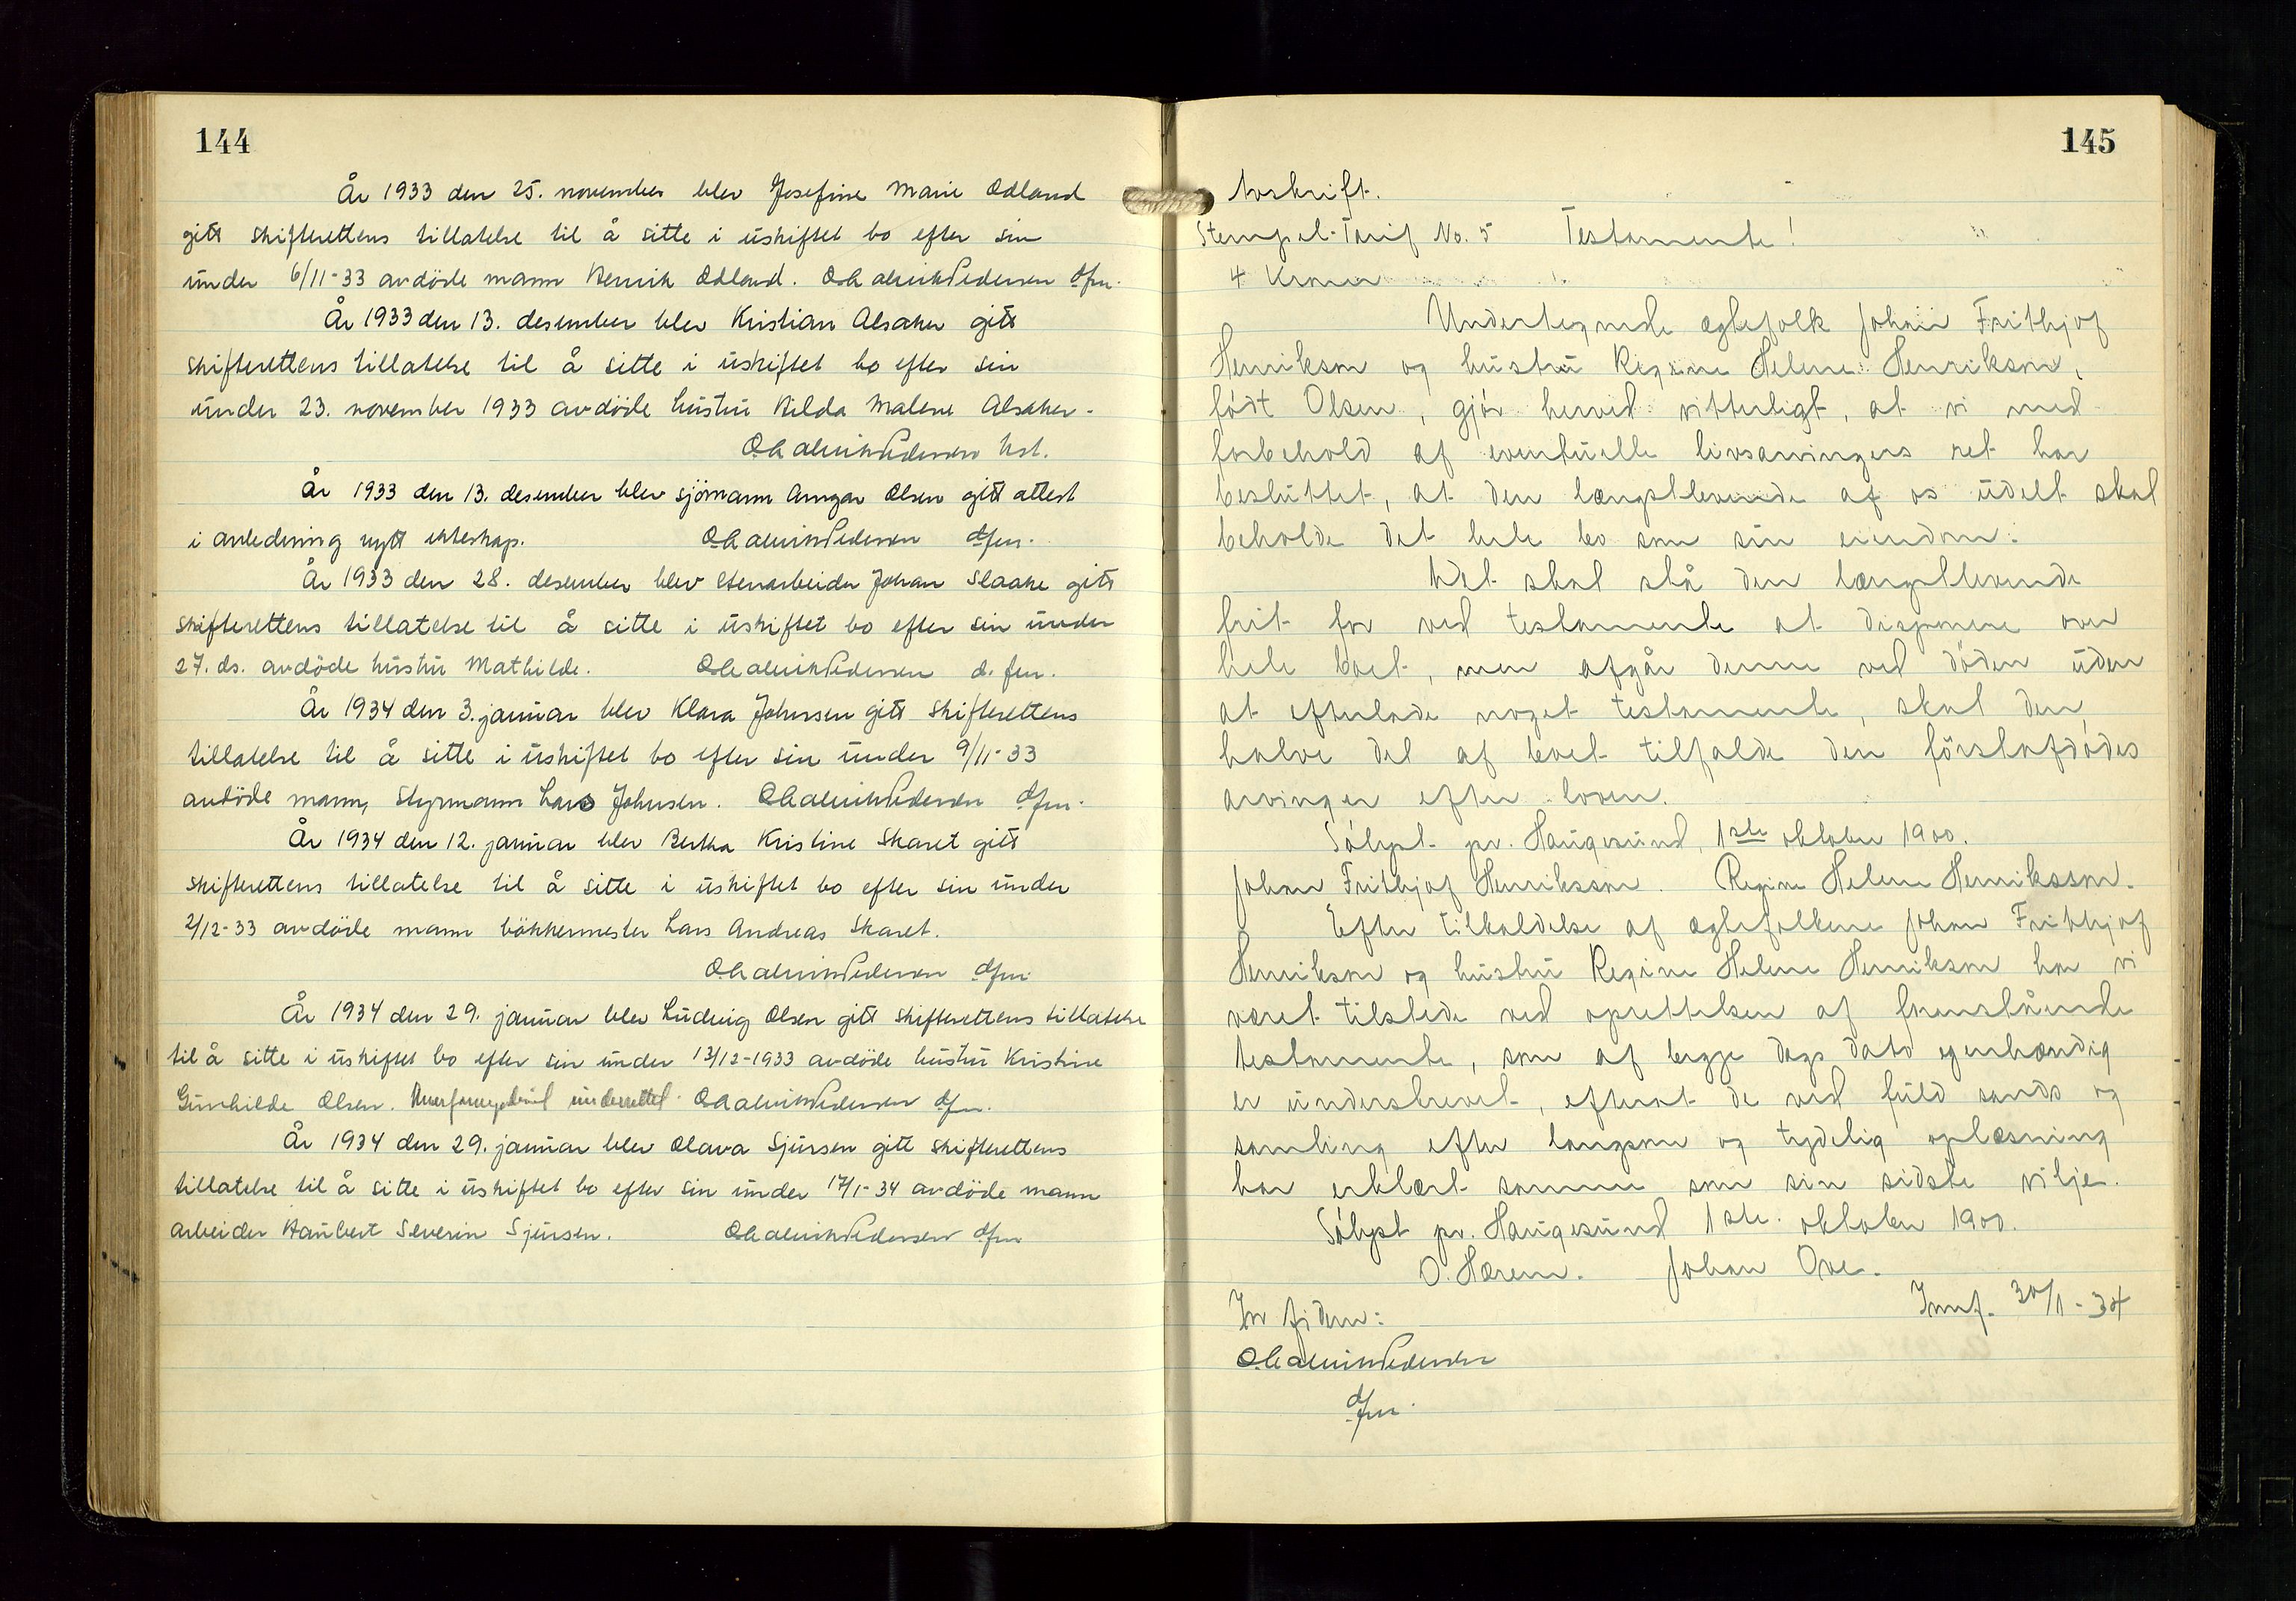 144
År 1933 den 25. november blev Josefine Marie Odland
gitt skifterettens tillatelse til å sitte i uskiftet bo efter sin
under 6/11-33 avdöde mann Henrik Odland. dfm.
År 1933 den 13. desember blev Kristian Alsaker gitt
skifterettens tillatelse til å sitte i uskiftet bo efter sin
under 23. november 1933 avdöde hustru Hilda Malene Alsaker.
År 1933 den 13. desember blev sjömann Ansgar Olsen gitt attest
i anledning nytt ekteskap. dfm.
År 1933 den 28. desember blev stenarbeider Johan Slaake gitt
skifterettens tillatelse til å sitte i uskiftet bo efter sin under
27. ds. avdöde hustru Mathilde. d. fm.
År 1934 den 3. januar blev Klara Johnsen gitt skifterettens
tillatelse til å sitte i uskiftet bo efter sin under 9/11-33
avdöde mann, styrmann Lars Johnsen. dfm.
År 1934 den 12. januar blev Bertha Kristine Skaret gitt
skifterettens tillatelse til å sitte i uskiftet bo efter sin under
2/12-33 avdöde mann bökkermester Lars Andreas Skaret.
dfm
År 1934 den 29. januar blev Ludvig Olsen gitt skifterettens tillatelse
til å sitte i uskiftet bo efter sin under 13/12-1933 avdöde hustru Kristine
Gunhilde Olsen. underrettet. dfm.
År 1934 den 29. januar blev Olava Sjursen gitt skifterettens
tillatelse til å sitte i uskiftet bo efter sin under 17/1-34 avdöde mann
arbeider Haubert Severin Sjursen. dfm
145
Avskrift.
Stempel-Tarif No. 5 Testamente!
4 Kroner
Undertegnede ægtefolk Johan Frithjof
Henrikson og hustru Regine Helene Henrikson,
födt Olsen, gjör herved vitterligt, at vi med
forbehold af eventuelle livsarvingers ret har
besluttet, at den længstlevende af os udelt skal
beholde det hele bo som sin eiendom.
Det skal stå den længstlevende
frit for ved testamente at disponere over
hele boet, men afgår denne ved döden uden
at efterlade noget testamente, skal den
halve del af boet tilfalde den förstafdödes
arvinger efter loven.
Sölyst pr. Haugesund, 1ste oktober 1900.
Johan Frithjof Henriksson. Regine Helene Henriksson.
Efter tilkaldelse af ægtefolkene Johan Frithjof
Henrikson og hustru Regine Helene Henrikson har vi
været tilstede ved oprettelsen af foranstående
testamente, som af begge dags dato egenhændig
er underskrevet, efterat de ved fuld sands og
samling efter langsom og tydelig oplæsning
har erklært samme som sin sidste vilje.
Sölyst pr. Haugesund 1ste. oktober 1900.
O. Hærem. Johan Ove.
Innf. 30/1-34
dfm.